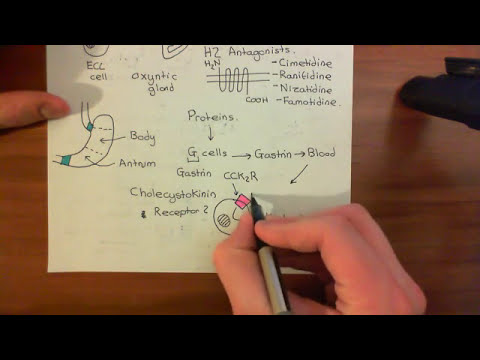 H2 Antagonists.
ECC cell
oxyntic gland
H₂N
COOH
- Cimetidine
- Ranitidine
- Nizatidine
- Famotidine.
Body
Antrum
Proteins.
G cells → Gastrin → Blood
Gastrin
CCK₂R
Cholecystokinin
Receptor 2